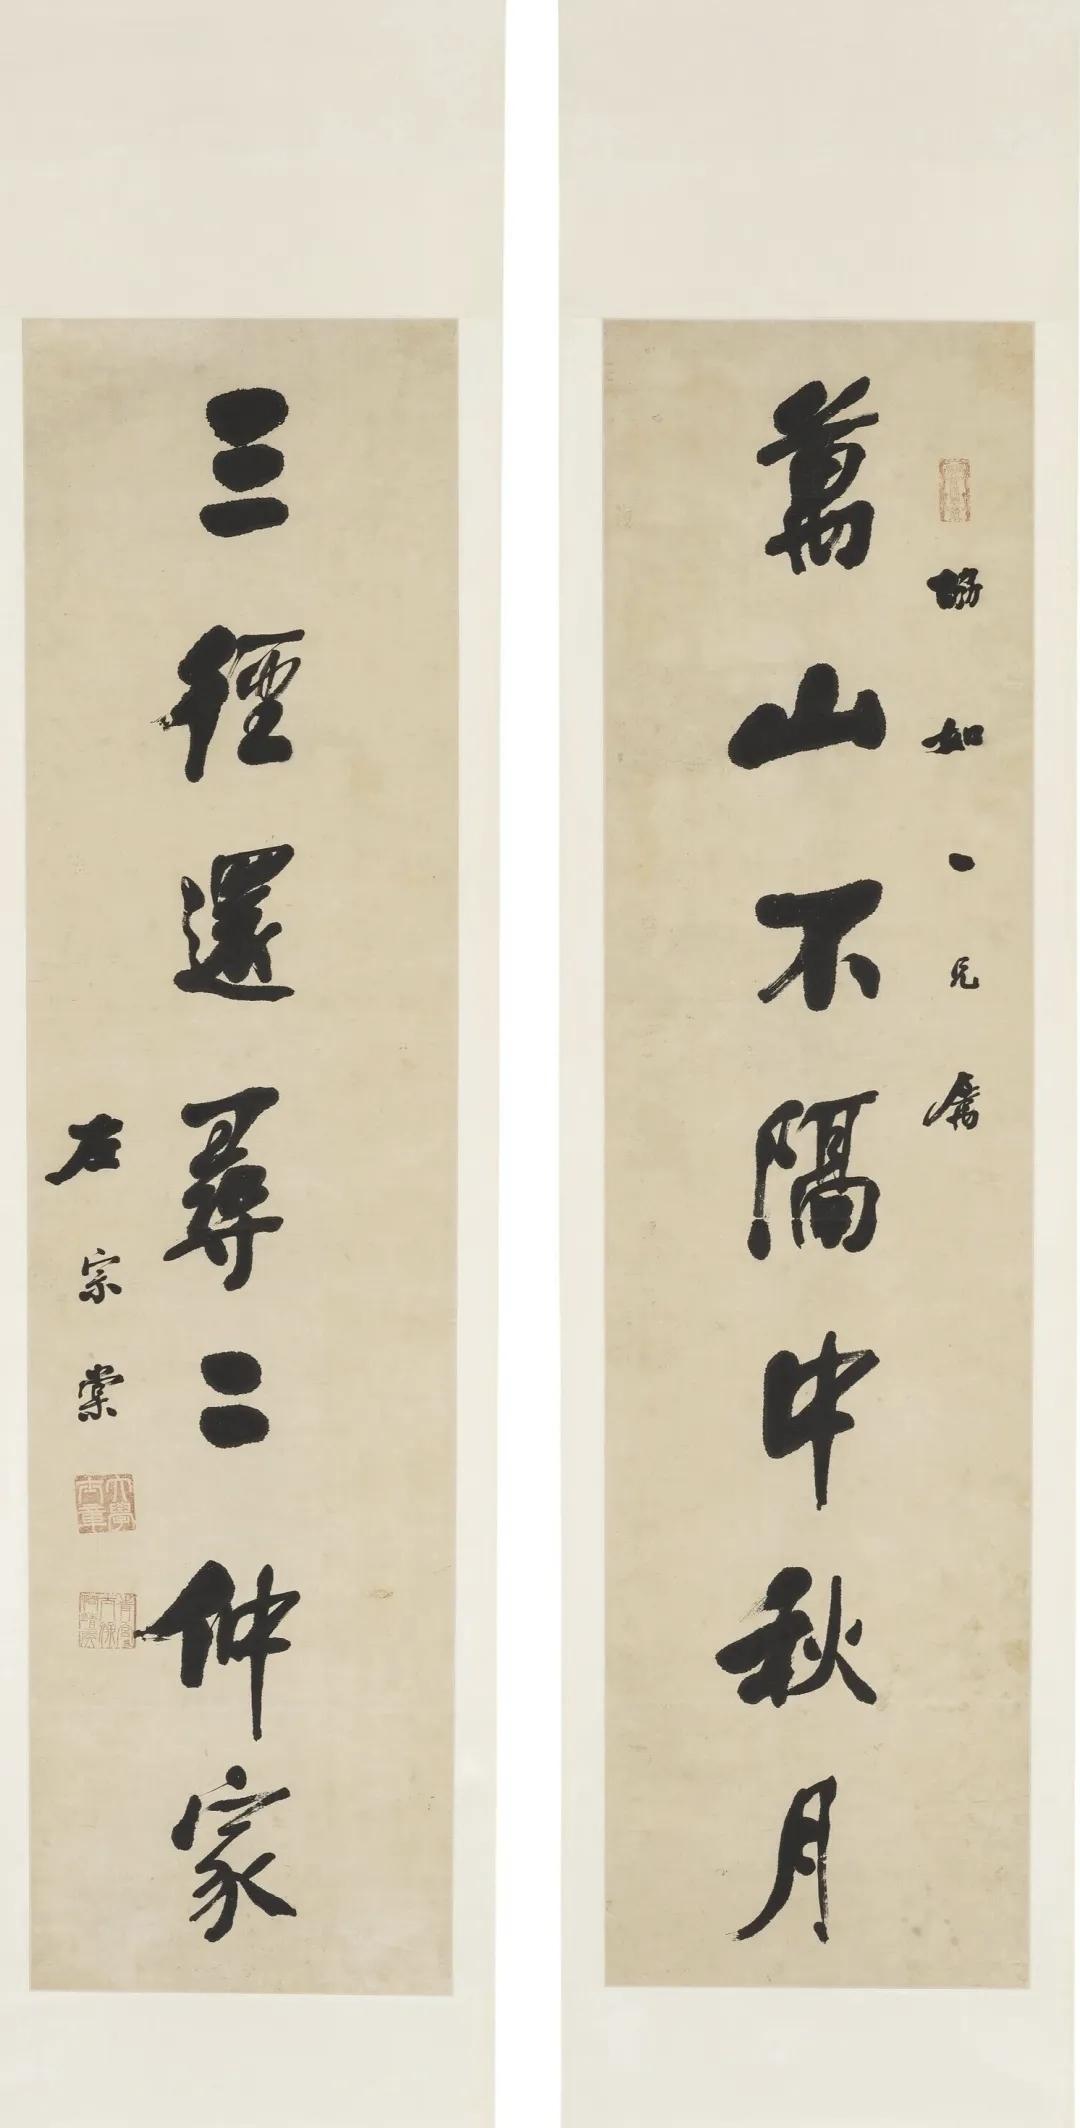 協如一兄屬
萬山不隔中秋月
三徑還尋二仲家
左宗棠
大學士章